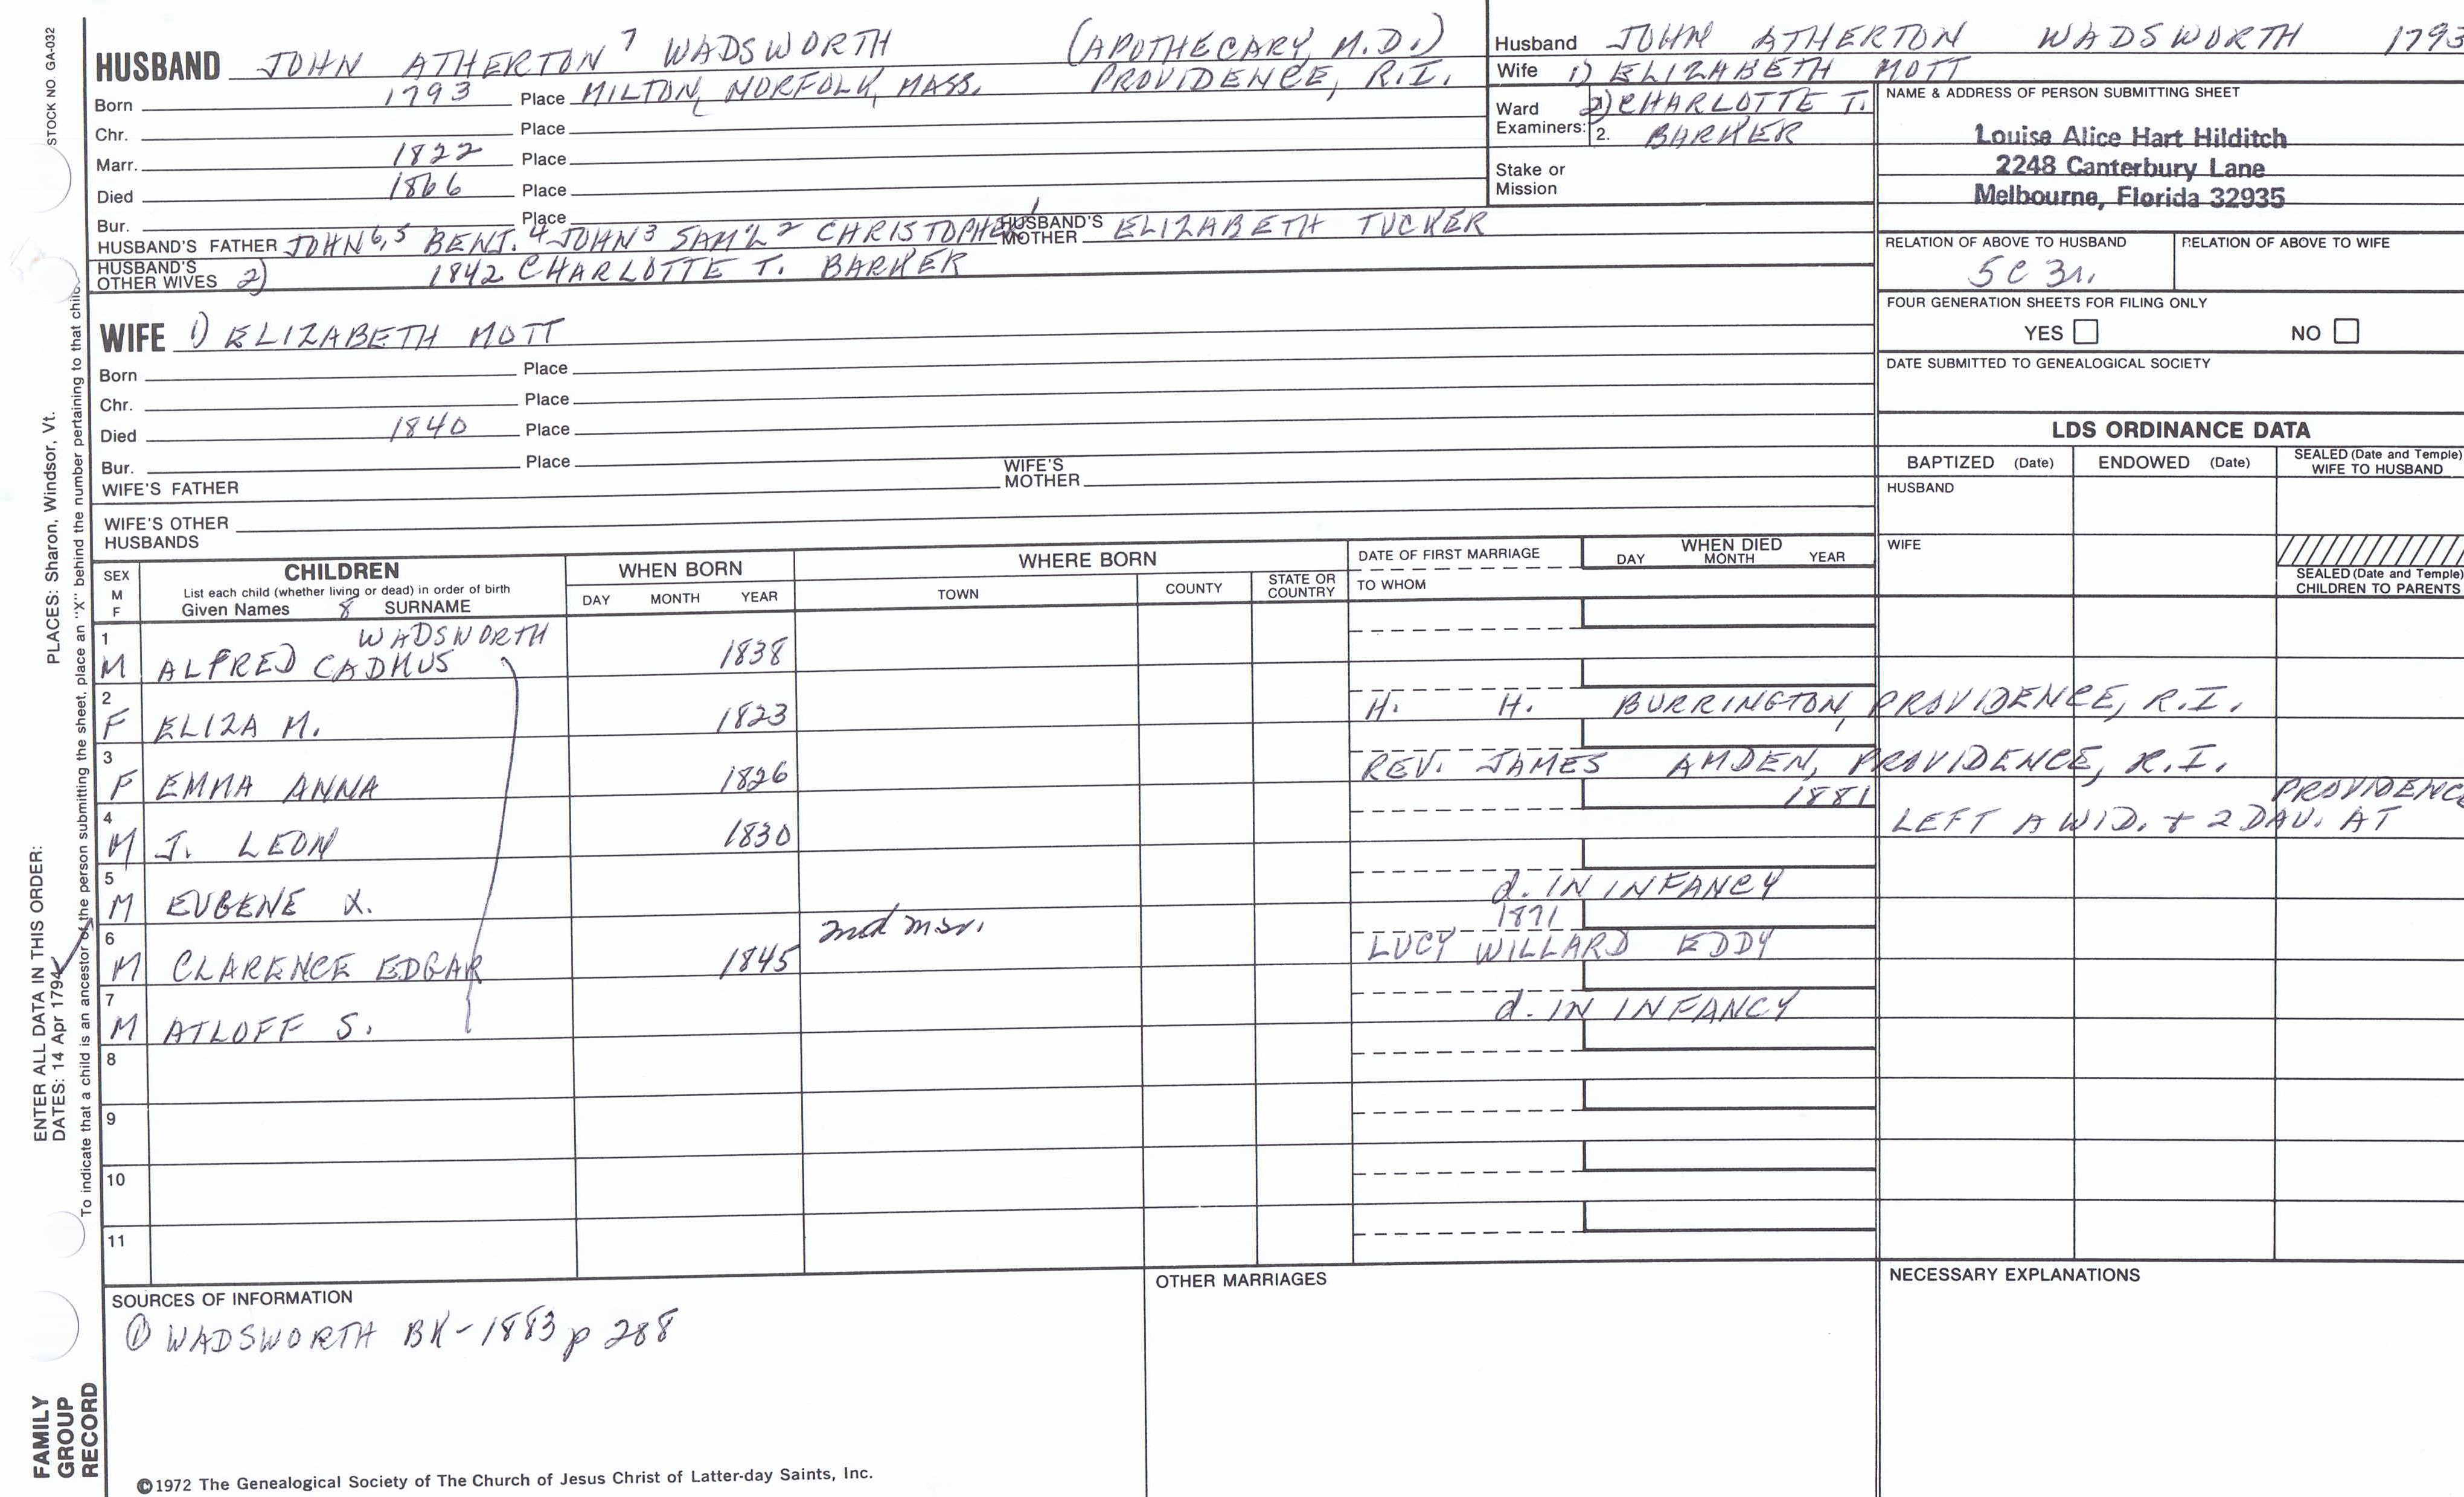 STOCK NO. GA-032
HUSBAND JOHN ATHERTON 7 WADSWORTH (APOTHECARY, M.D.)
Born 1793 Place MILTON, NORFOLK, MASS. PROVIDENCE, R.I.
Chr. Place
Marr. 1822 Place
Died 1866 Place
Bur. Place
HUSBAND'S FATHER JOHN 6, 5 BENJ. 4 JOHN 3 SAM'L 2 CHRISTOPHER 1 HUSBAND'S MOTHER ELIZABETH TUCKER
HUSBAND'S OTHER WIVES 2) 1842 CHARLOTTE T. BARKER
WIFE 1) ELIZABETH MOTT
Born Place
Chr. Place
Died 1840 Place
Bur. Place
WIFE'S FATHER WIFE'S MOTHER
WIFE'S OTHER HUSBANDS
Husband JOHN ATHERTON WADSWORTH 1793
Wife 1) ELIZABETH MOTT
Ward Examiners: 2) CHARLOTTE T.
2. BARKER
Stake or Mission
NAME & ADDRESS OF PERSON SUBMITTING SHEET
Louise Alice Hart Hilditch
2248 Canterbury Lane
Melbourne, Florida 32935
RELATION OF ABOVE TO HUSBAND RELATION OF ABOVE TO WIFE
5 C 3r.
FOUR GENERATION SHEETS FOR FILING ONLY
YES NO
DATE SUBMITTED TO GENEALOGICAL SOCIETY
LDS ORDINANCE DATA
BAPTIZED (Date) ENDOWED (Date) SEALED (Date and Temple) WIFE TO HUSBAND
HUSBAND
WIFE
SEALED (Date and Temple) CHILDREN TO PARENTS
SEX M F CHILDREN WHEN BORN WHERE BORN DATE OF FIRST MARRIAGE WHEN DIED
List each child (whether living or dead) in order of birth
Given Names 8 SURNAME DAY MONTH YEAR TOWN COUNTY STATE OR COUNTRY TO WHOM DAY MONTH YEAR
1 WADSWORTH
M ALFRED CADMUS 1838
2
F ELIZA M. 1823 H. H. BURRINGTON, PROVIDENCE, R.I.
3
F EMMA ANNA 1826 REV. JAMES AMDEN, PROVIDENCE, R.I.
4 1881 PROVIDENCE
M J. LEON 1830 LEFT A WID. + 2 DAU. AT
5
M EUGENE X. d. IN INFANCY
6 2nd mar. 1871
M CLARENCE EDGAR 1845 LUCY WILLARD EDDY
7
M ATLOFF S. d. IN INFANCY
8
9
10
11
SOURCES OF INFORMATION
① WADSWORTH BK-1883 p 288
OTHER MARRIAGES
NECESSARY EXPLANATIONS
©1972 The Genealogical Society of The Church of Jesus Christ of Latter-day Saints, Inc.
FAMILY GROUP RECORD
ENTER ALL DATA IN THIS ORDER:
DATES: 14 Apr 1794
PLACES: Sharon, Windsor, Vt.
To indicate that a child is an ancestor of the person submitting the sheet, place an "X" behind the number pertaining to that child.